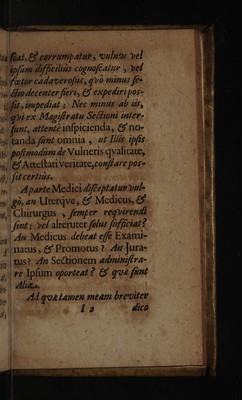 scat, & corrumpatur, vulnus vel
ipsum difficilius cognoscatur, vel
fœtor cadaverosus, qvo minus se-
ctio decenter fieri, & expediri pos-
sit, impediat; Nec minus ab iis,
qvi ex Magistratu Sectioni inter-
sunt, attente inspicienda, & no-
tanda sunt omnia, ut Illis ipsis
postmodum de Vulneris qvalitate,
& Attestati veritate, constare pos-
sit certius.
A parte Medici disceptatur vul-
gò, an Uterqve, & Medicus, &
Chirurgus, semper reqvirendi
sint; vel alteruter solus sufficiat?
An Medicus debeat esse Exami-
natus, & Promotus? An Jura-
tus? An Sectionem administra-
re Ipsum oporteat? & qvæ sunt
Alia.
Ad qvæ tamen meam breviter
I 2 dico